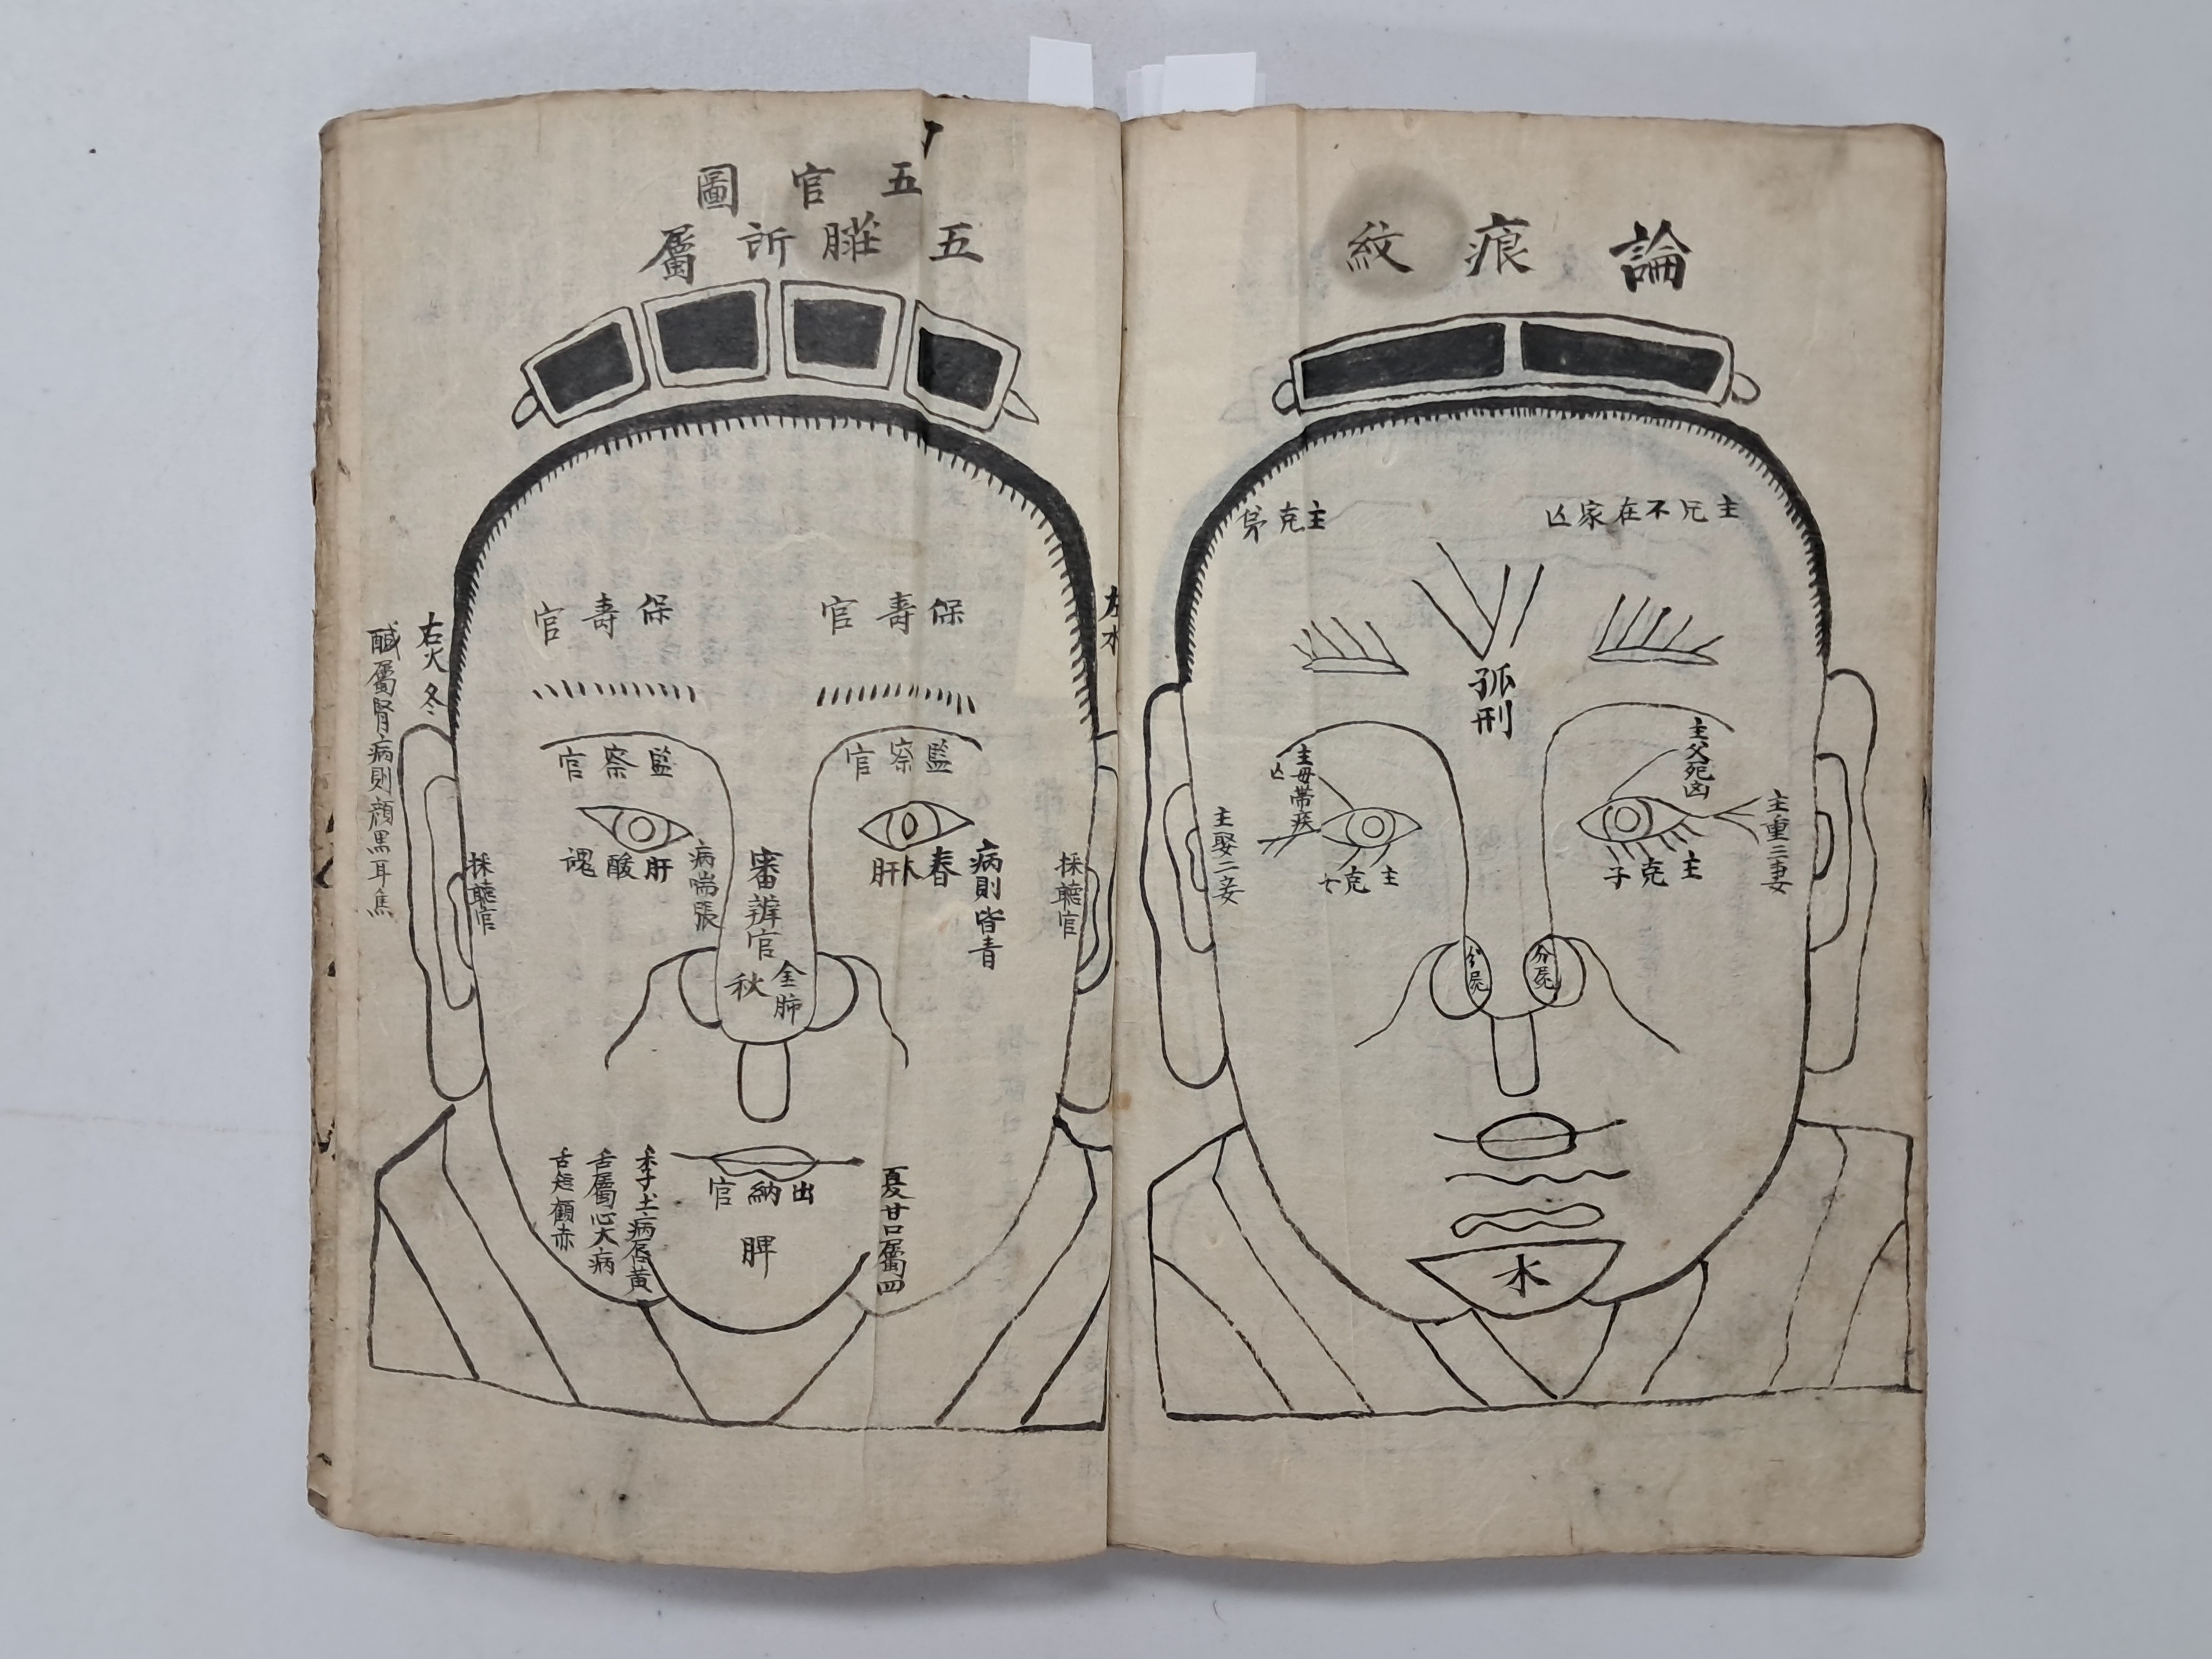 論痕紋
主兄不在家凶
主克弟
孤刑
主父死凶
主重三妻
主克子
主母帶疾
凶
主娶二妾
主克女
分屍
分屍
水
五官圖
五臟所屬
保壽官
保壽官
左水
右火冬
醎屬腎病則顔黑耳焦
監察官
監察官
春木肝
病則眥青
肝酸魂
病喘張
審辨官
金肺
秋
採聽官
採聽官
出納官
脾
夏甘口屬四
季子土病唇黃
舌屬心火病
舌短顴赤